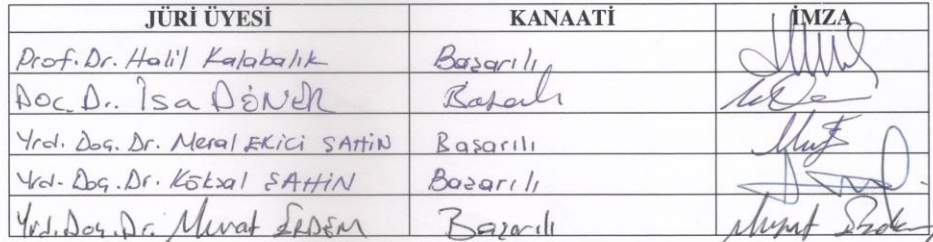 JÜRİ ÜYESİ KANAATİ İMZA
Prof. Dr. Halil Kalabalık Başarılı
Doç. Dr. İsa DÖNER Başarılı
Yrd. Doç. Dr. Meral EKİCİ ŞAHİN Başarılı
Yrd. Doç. Dr. Köksal ŞAHİN Başarılı
Yrd. Doç. Dr. Murat ERDEM Başarılı Murat Erdem